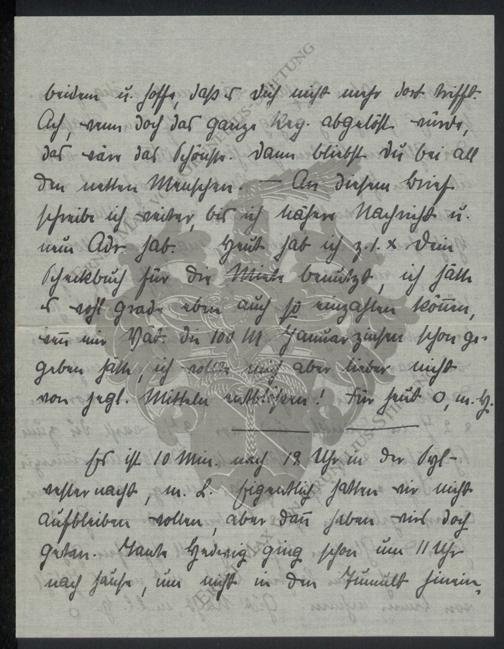 beiden u. hoffe, daß er dich nicht mehr dort trifft.
Ach wenn doch das ganze Reg. abgelöst würde,
das wäre das Schönste. Dann bliebst Du bei all
den netten Menschen. — An diesem Brief
schreibe ich weiter, bis ich nähere Nachricht u.
neue Adr. hab. Heut hab ich z. 1. x Dein
Scheckbuch für die Miete benützt, ich hätte
es wohl grade eben auch so einzahlen können,
wenn mir Vat. die 100 M Januarzinsen schon ge-
geben hätte, ich wollte mich aber lieber nicht
von jegl. Mitteln entblößen! Für heut O, m. H.
Es ist 10 Min. nach 12 Uhr in der Syl-
vesternacht, m. L. Eigentlich hatten wir nicht
aufbleiben wollen, aber dann haben wirs doch
getan. Tante Hedwig ging schon um 11 Uhr
nach Hause, um nicht in den Tumult hinein-